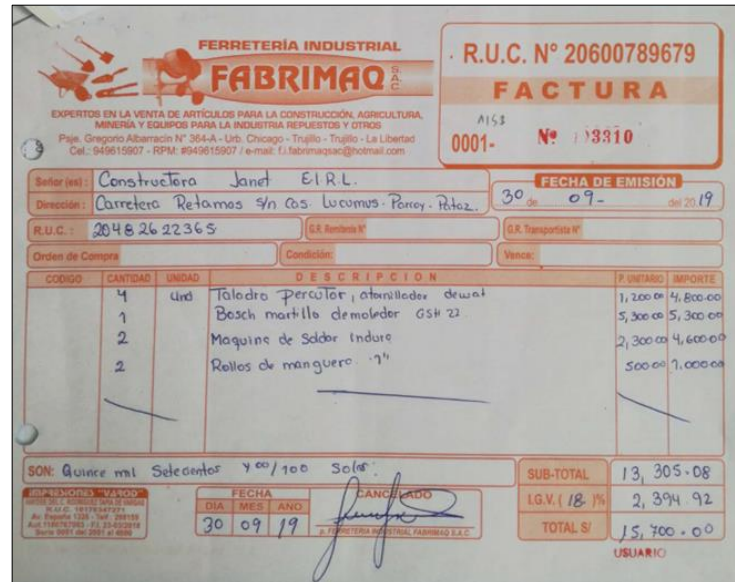 FERRETERÍA INDUSTRIAL
FABRIMAQ S.A.C
EXPERTOS EN LA VENTA DE ARTÍCULOS PARA LA CONSTRUCCIÓN, AGRICULTURA,
MINERÍA Y EQUIPOS PARA LA INDUSTRIA REPUESTOS Y OTROS
Psje. Gregorio Albarracin N° 364-A - Urb. Chicago - Trujillo - Trujillo - La Libertad
Cel.: 949615907 - RPM: #949615907 / e-mail: f.i.fabrimaqsac@hotmail.com
R.U.C. N° 20600789679
FACTURA
0001- Nº 3310
Señor (es) : Constructora Janet E.I.R.L.
Dirección : Carretera Retamas S/n Cas. Lucumus. Parcoy. Pataz.
FECHA DE EMISIÓN
30 de 09 - del 20 19
R.U.C. : 20482622365 G.R. Remitente N° G.R. Transportista N°
Orden de Compra Condición: Vence:
CODIGO CANTIDAD UNIDAD DESCRIPCION P. UNITARIO IMPORTE
4 Und Taladro Percutor, atornillador dewat 1,200.00 4,800.00
1 Bosch martillo demoledor GSH 22 5,300.00 5,300.00
2 Maquina de Soldar Indura 2,300.00 4,600.00
2 Rollos de manguera 1" 500.00 1,000.00
SON: Quince mil Setecientos y 00/100 Soles.
SUB-TOTAL 13,305.08
I.G.V. ( 18 )% 2,394.92
TOTAL S/ 15,700.00
IMPRESIONES "VAROD"
FECHA
DIA MES ANO
30 09 19
CANCELADO
p. FERRETERIA INDUSTRIAL FABRIMAQ S.A.C
USUARIO